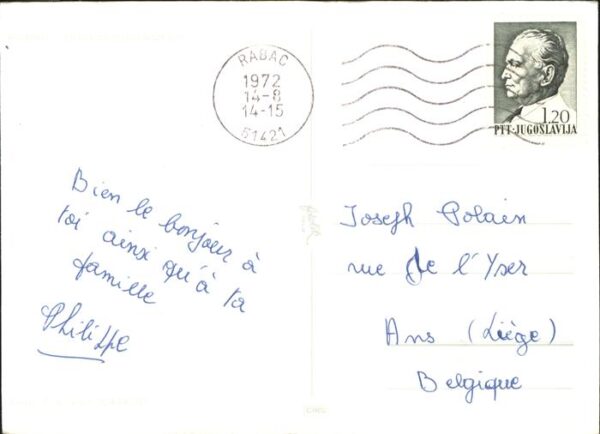 RABAC
1972
14-8
14-15
51421
1.20
PTT-JUGOSLAVIJA
Bien le bonjour à
toi ainsi qu'à ta
famille
Philippe
Joseph Polain
rue de l'Yser
Ans (Liège)
Belgique